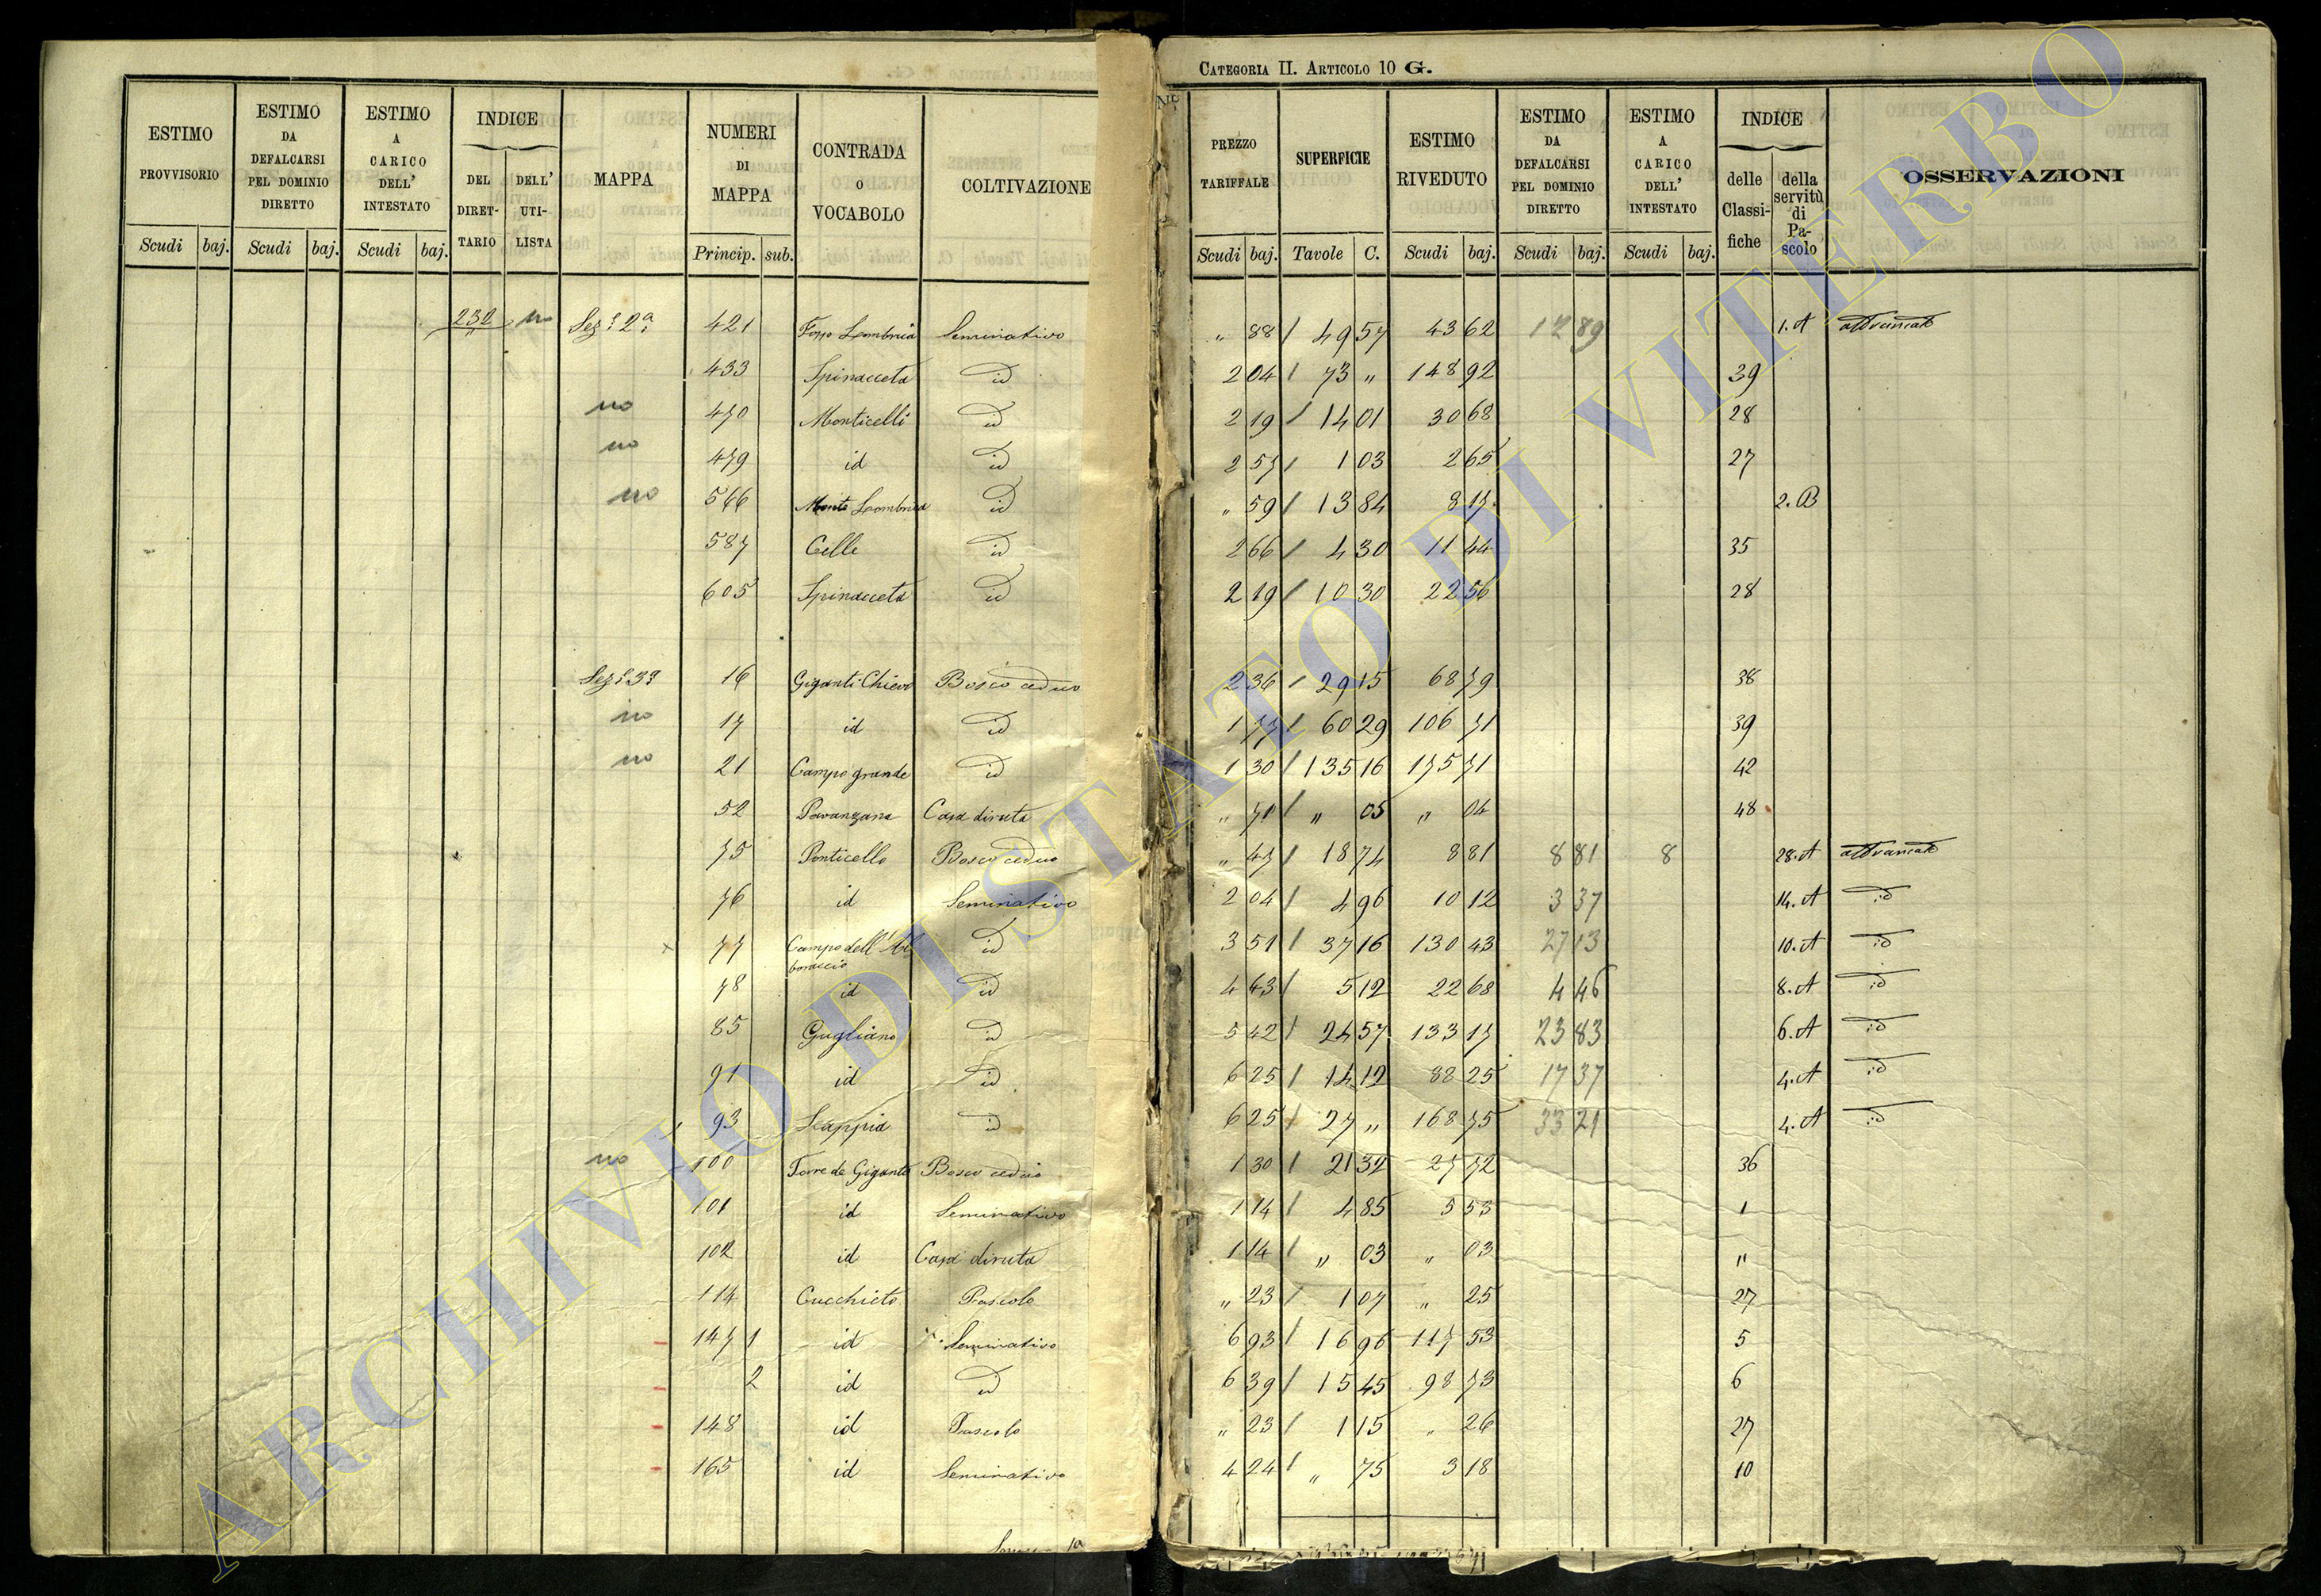 CATEGORIA II. ARTICOLO 10 G.
ESTIMO PROVVISORIO Scudi baj.
ESTIMO DA DEFALCARSI PEL DOMINIO DIRETTO Scudi baj.
ESTIMO A CARICO DELL' INTESTATO Scudi baj.
INDICE DEL DIRET-TARIO DELL' UTI-LISTA
MAPPA
NUMERI DI MAPPA Princip. sub.
CONTRADA O VOCABOLO
COLTIVAZIONE
PREZZO TARIFFALE Scudi baj.
SUPERFICIE Tavole C.
ESTIMO RIVEDUTO Scudi baj.
ESTIMO DA DEFALCARSI PEL DOMINIO DIRETTO Scudi baj.
ESTIMO A CARICO DELL' INTESTATO Scudi baj.
INDICE delle Classi-fiche della servitù di Pa-scolo
OSSERVAZIONI
232 no Sez: 2a 421 Seminativo " 88 / 49 57 43 62 12 89 1. A
433 Spinacceta id 2 04 / 73 " 148 92 39
no 470 Monticelli id 2 19 / 14 01 30 68 28
no 479 id id 2 57 / 1 03 2 65 27
no 566 Monte id " 59 / 13 84 8 17 2. B
587 Celle id 2 66 / 4 30 11 44 35
605 Spinacceta id 2 19 / 10 30 22 56 28
Sez: 3a 16 Giganti Bosco ceduo 2 36 / 29 15 68 79 38
no 17 id id 1 77 / 60 29 106 71 39
no 21 Campo grande id 1 30 / 135 16 175 71 42
52 Pavanzana Casa diruta " 71 / " 05 " 04 48
75 Ponticello Bosco ceduo " 47 / 18 74 8 81 8 81 8 28. A
76 id Seminativo 2 04 / 4 96 10 12 3 37 14. A id
77 Campo dell' id 3 51 / 37 16 130 43 27 13 10. A id
78 id id 4 43 / 5 12 22 68 4 46 8. A id
85 Gugliano id 5 42 / 24 57 133 17 23 83 6. A id
91 id id 6 25 / 14 12 88 25 17 37 4. A id
93 id 6 25 / 27 " 168 75 33 21 4. A id
no 100 Torre de Giganti Bosco ceduo 1 30 / 21 32 27 72 36
101 id Seminativo 1 14 / 4 85 5 53 1
102 id Casa diruta 1 14 / " 03 " 03 "
114 Cucchieto Pascolo " 23 / 1 07 " 25 27
147 1 id Seminativo 6 93 / 16 96 117 53 5
2 id id 6 39 / 15 45 98 73 6
148 id Pascolo " 23 / 1 15 " 26 27
165 id Seminativo 4 24 / " 75 3 18 10
ARCHIVIO DI STATO DI VITERBO